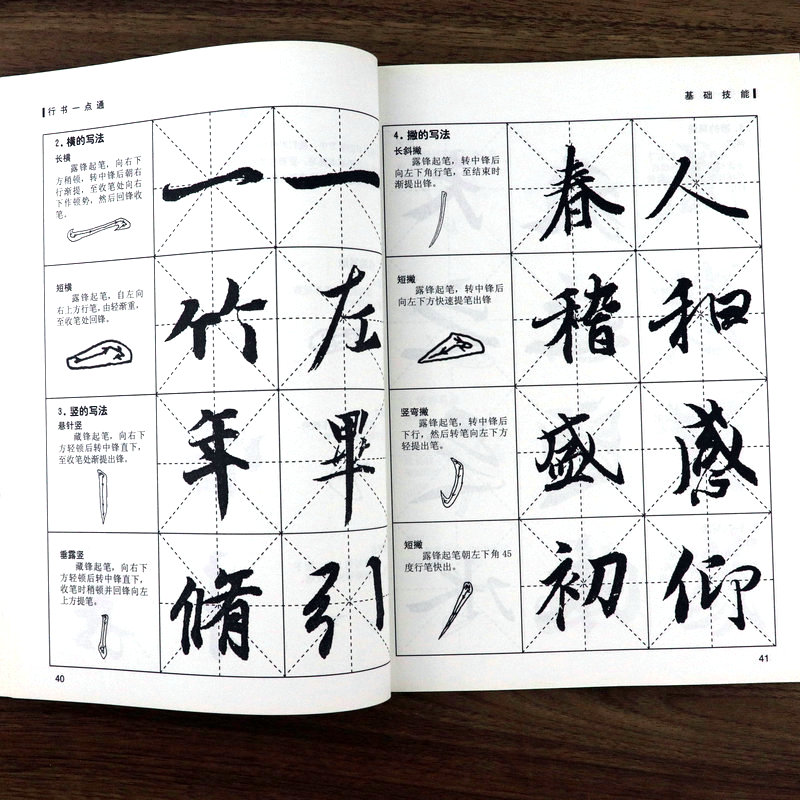 行书一点通
2.横的写法
长横
露锋起笔，向右下
方稍顿，转中锋后朝右
行渐提，至收笔处向右
下作顿势，然后回锋收
笔。
一 一
短横
露锋起笔，自左向
右上方行笔，由轻渐重，
至收笔处回锋。
竹 左
3.竖的写法
悬针竖
藏锋起笔，向右下
方轻顿后转中锋直下，
至收笔处渐提出锋。
年 畢
垂露竖
藏锋起笔，向右下
方轻顿后转中锋直下，
收笔时稍顿并回锋向左
上方提笔。
脩 引
40
基础技能
4.撇的写法
长斜撇
露锋起笔，转中锋后
向左下角行笔，至结束时
渐提出锋。
春 人
短撇
露锋起笔，转中锋后
向左下方快速提笔出锋
稽 和
竖弯撇
露锋起笔，转中锋后
下行，然后转笔向左下方
轻提出笔。
盛 感
短撇
露锋起笔朝左下角45
度行笔快出。
初 仰
41